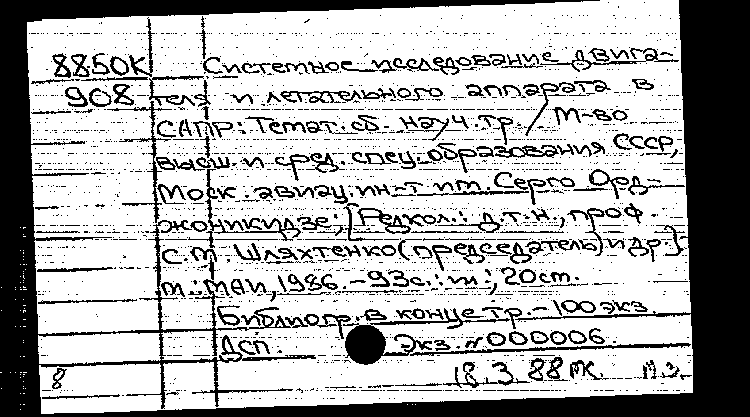 8850К Системное исследование двига-
908 теля и летательного аппарата в
САПР: Темат. сб. науч. тр. / М-во
высш. и сред. спец. образования СССР,
Моск. авиац. ин-т им. Серго Орд-
жоникидзе; [Редкол.: д.т.н., проф.
С.М. Шляхтенко (председатель) и др.].
М.: МАИ, 1986. - 93с.: ил.; 20см.
Библиогр. в конце тр. - 100 экз.
ДСП. Экз. № 000006.
8 18.3.88 МК м.з.